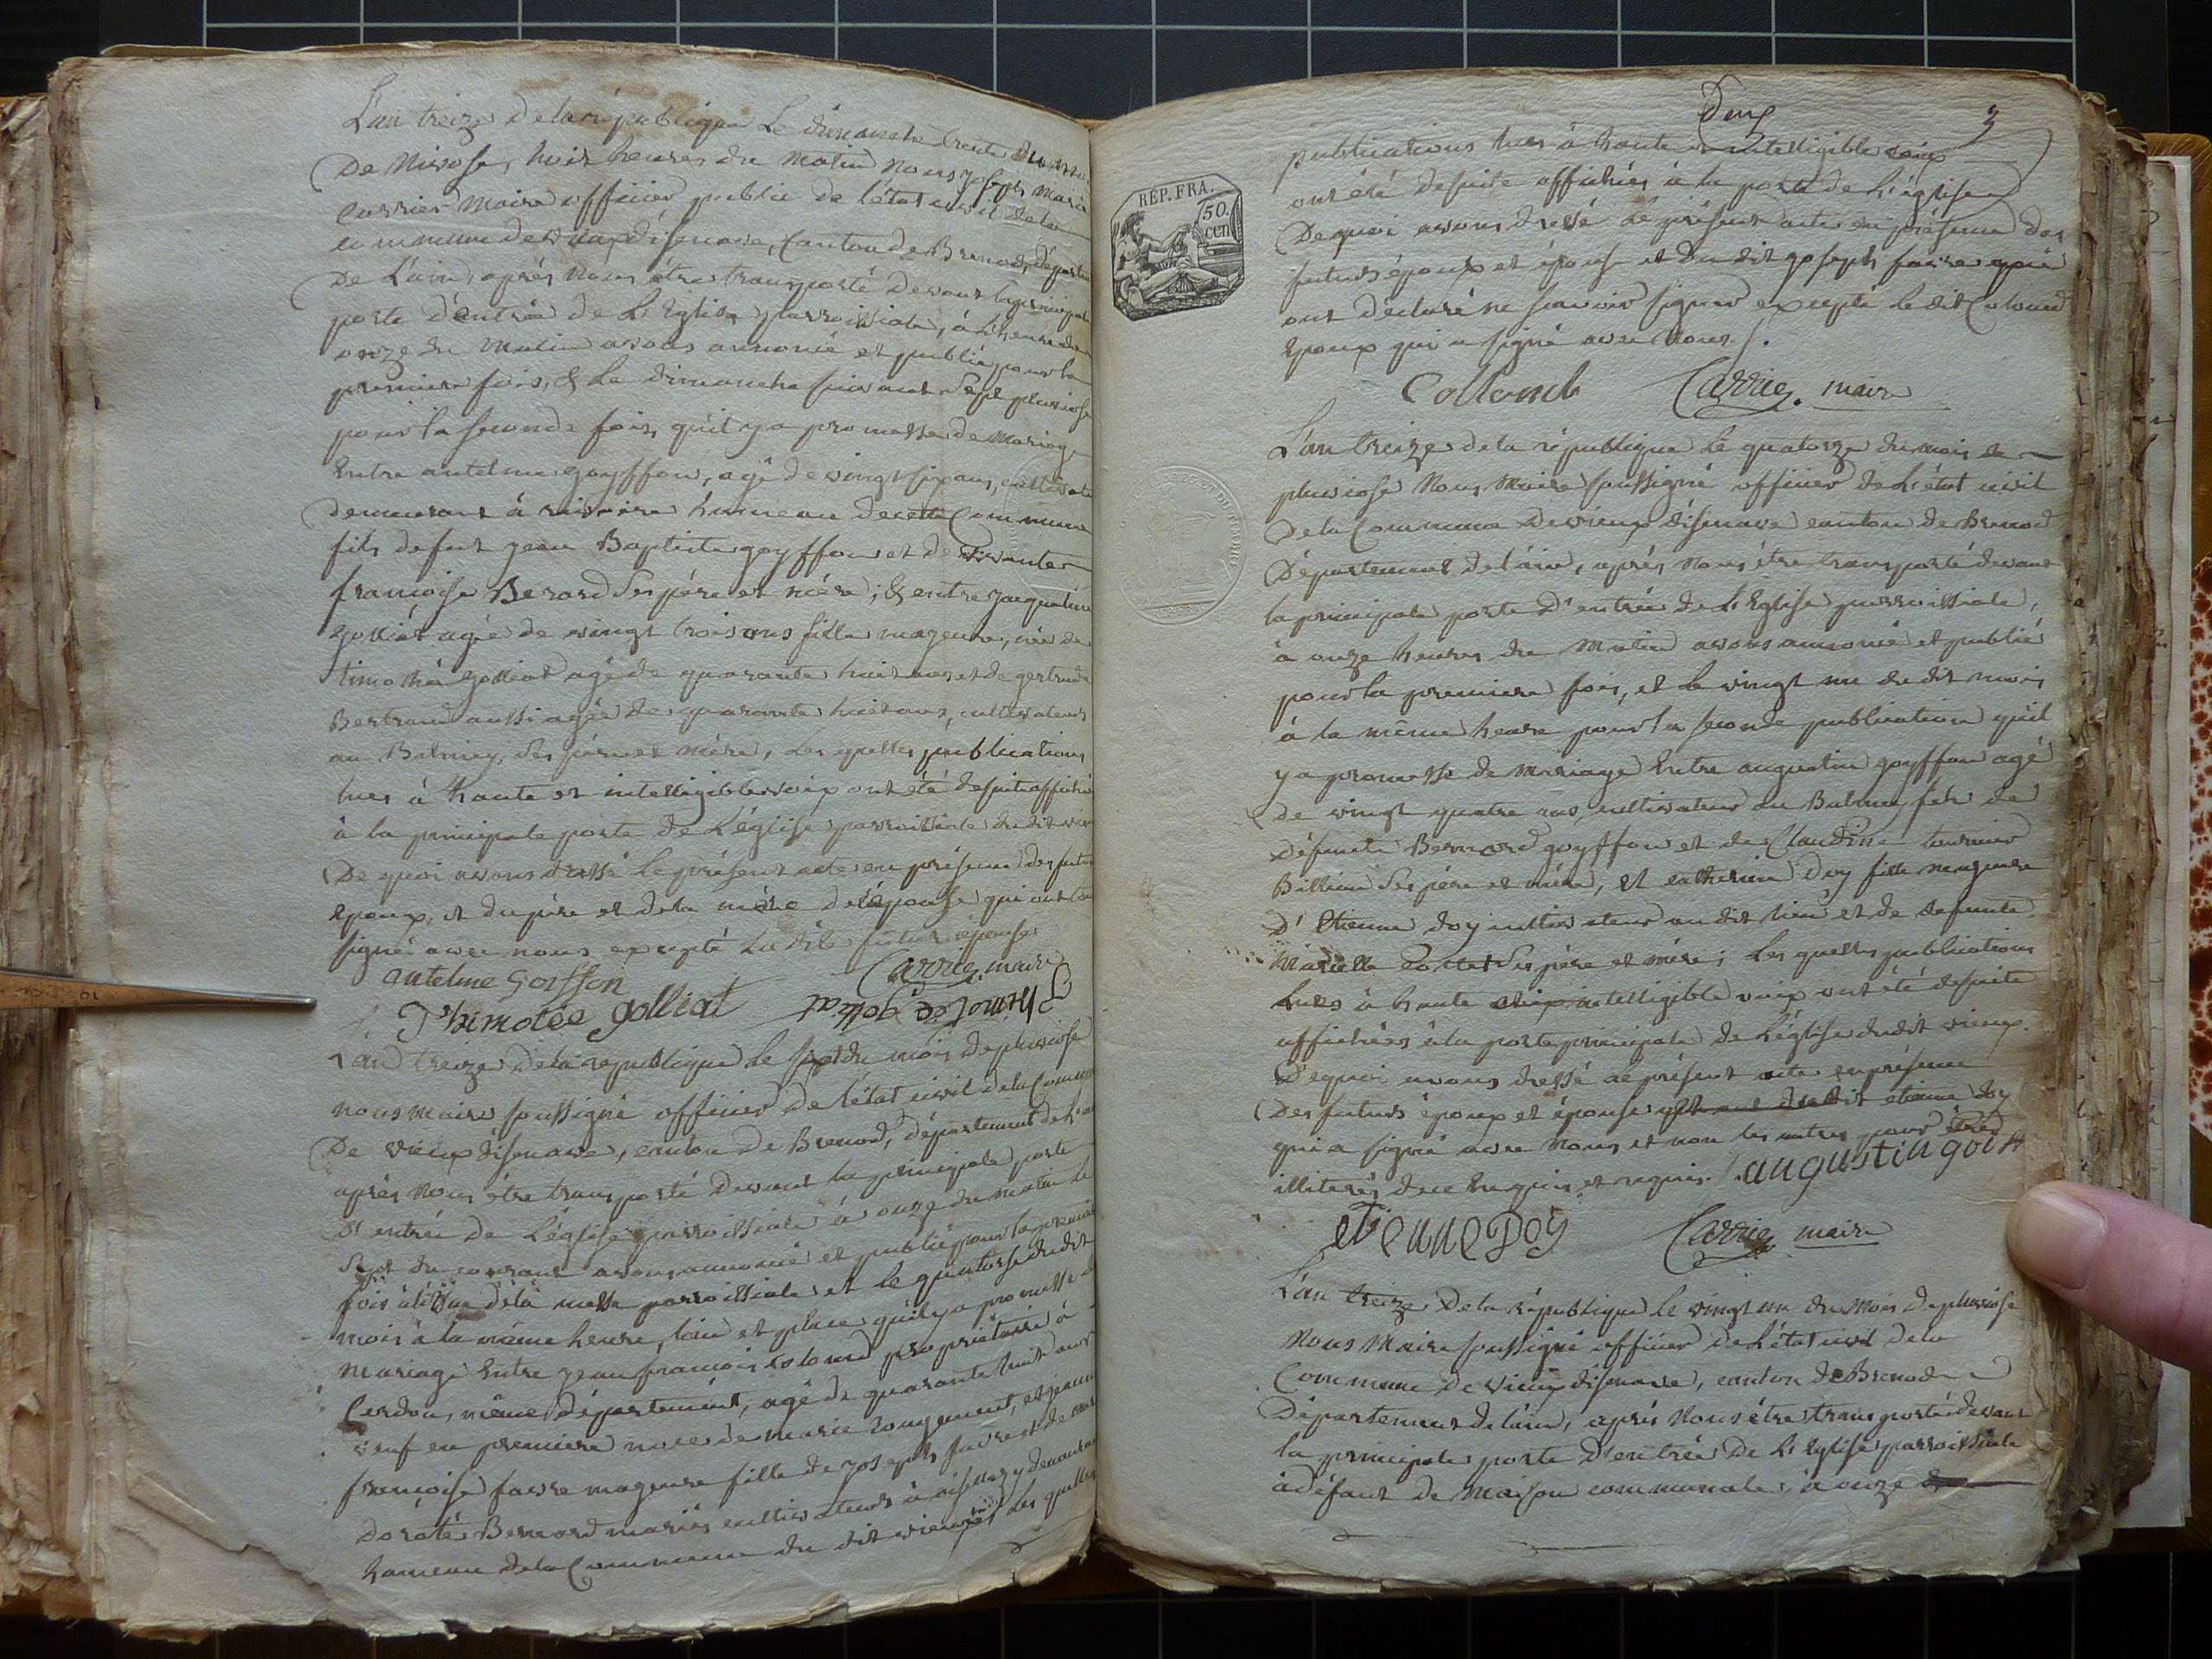 L'an treize de la république Le dimanche trente du mois
De Nivose, huit heures du matin Nous joseph marie
Carrier maire officier public de l'état civil de la
commune de vieux d'isenave, Canton de Brenod, départem
De L'ain, après nous être transporté devant la principale
porte d'entrée de L'Eglise parroissiale, à L'heure de
onze du matin avons annoncé et publié pour la
premiere fois, & Le dimanche suivant sept pluviose
pour la seconde fois, qu'il y a promesse de mariage
Entre antelme goyffon, agé de vingt six ans, cultivate
demeurant à hameau de cette Commune
fils de feut jean Baptiste goyffon et de vivante
francoise Berard Ses père et mère; & entre jacqueline
golliat agée de vingt trois ans fille mageure, née de
timothé golliat agé de quarante huit ans et de gertrude
Bertrand aussi agée de quarante huit ans, cultivateurs
au Balmey, Ses père et mère, Les quelles publications
lues à haute et intelligible voix ont été desuite affiché
à la principale porte de L'église parroissiale dudit vieu
De quoi avons dressé le présent acte en présence des futur
Epoux, et du père et de la mère de l'épouse qui ont
signé avec nous excepté La dite future épouse
antelme Goiffon Carrier maire
Thimotée golliat Thimotée golliat
L'an treize de la republique le sept du mois de pluviose
nous maire soussigné officier de l'état civil de la Commune
De vieux d'isenave, canton de Brenod, département de l'ain
après nous être transporté devant la principale porte
D'entrée de L'église parroissiale à onze du matin le
Sept du courant avons annoncé et publié pour la premie
fois à l'issue de la messe parroissiale et le quatorse dudit
mois à la même heure, lieu et place qu'il y a promesse de
mariage Entre jean francois colomb propriétaire à
Cerdon, même département, agé de quarante huit ans
veuf en premiere noce de marie rougemont, et jeanne
francoise favre mageure fille de joseph favre et de
doroté Bernard mariés cultivateurs à y demeurant
hameau de la Commune du dit vieux Les quelles
Deux 3
publications lues à haute et intelligible voix
ont été desuite affichées à la porte de L'église
De quoi avons dressé Le présent acte en présence des
futurs époux et épouse et du dit joseph favre qui
ont déclaré ne scavoir signer excepté le dit Colomb
Epoux qui a signé avec Nous./.
Collomb Carrier maire
REP. FRA.
50.
cen
L'an treize de la république le quatorze du mois de
pluviose Nous Maire soussigné officier de L'état civil
De la Commune de vieux d'isenave canton de Brenod
Département de l'ain, après Nous être transporté devant
la principale porte D'entrée de L'Eglise parroissiale,
à onze heures du Matin avons annoncé et publié
pour la premiere fois, et le vingt un du dit mois
à la même heure pour la seconde publication qu'il
y a promesse de mariage Entre augustin goyffon agé
De vingt quatre ans, cultivateur au Balmey fils de
défunct Bernard goyffon et de Claudine tournier
Billion Ses père et mère, et catherine Doy fille mageure
D'Etienne doy cultivateur au dit lieu et de defunte
Ses père et mère; Les quelles publications
Lues à haute intelligible voix ont été desuite
affichées à la porte principale de L'église dudit vieux.
De quoi avons dressé ce présent acte en présence
Des futurs époux et épouse dudit etienne doy
qui a signé avec Nous et non les autres pour être
illiterés de ce Enquis et requis. augustin goi
etienne Doy Carrier maire
L'an treize de la république le vingt un du Mois de pluviose
Nous Maire soussigné officier de L'état civil de la
Commune de Vieux d'isenave, canton de Brenod
Département de l'ain, après Nous être transporté devant
la principale porte D'entrée de L'Eglise parroissiale
à défaut de Maison communale, à onze